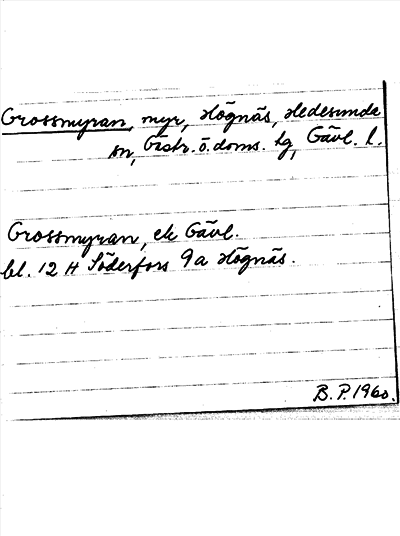 Grossmyran, myr, Högnäs, Hedesunda
sn, Gästr. ö. doms. hg, Gävl. l.
Grossmyran, ek Gävl.
bl. 12 H Söderfors 9a Högnäs.
B. P. 1960.